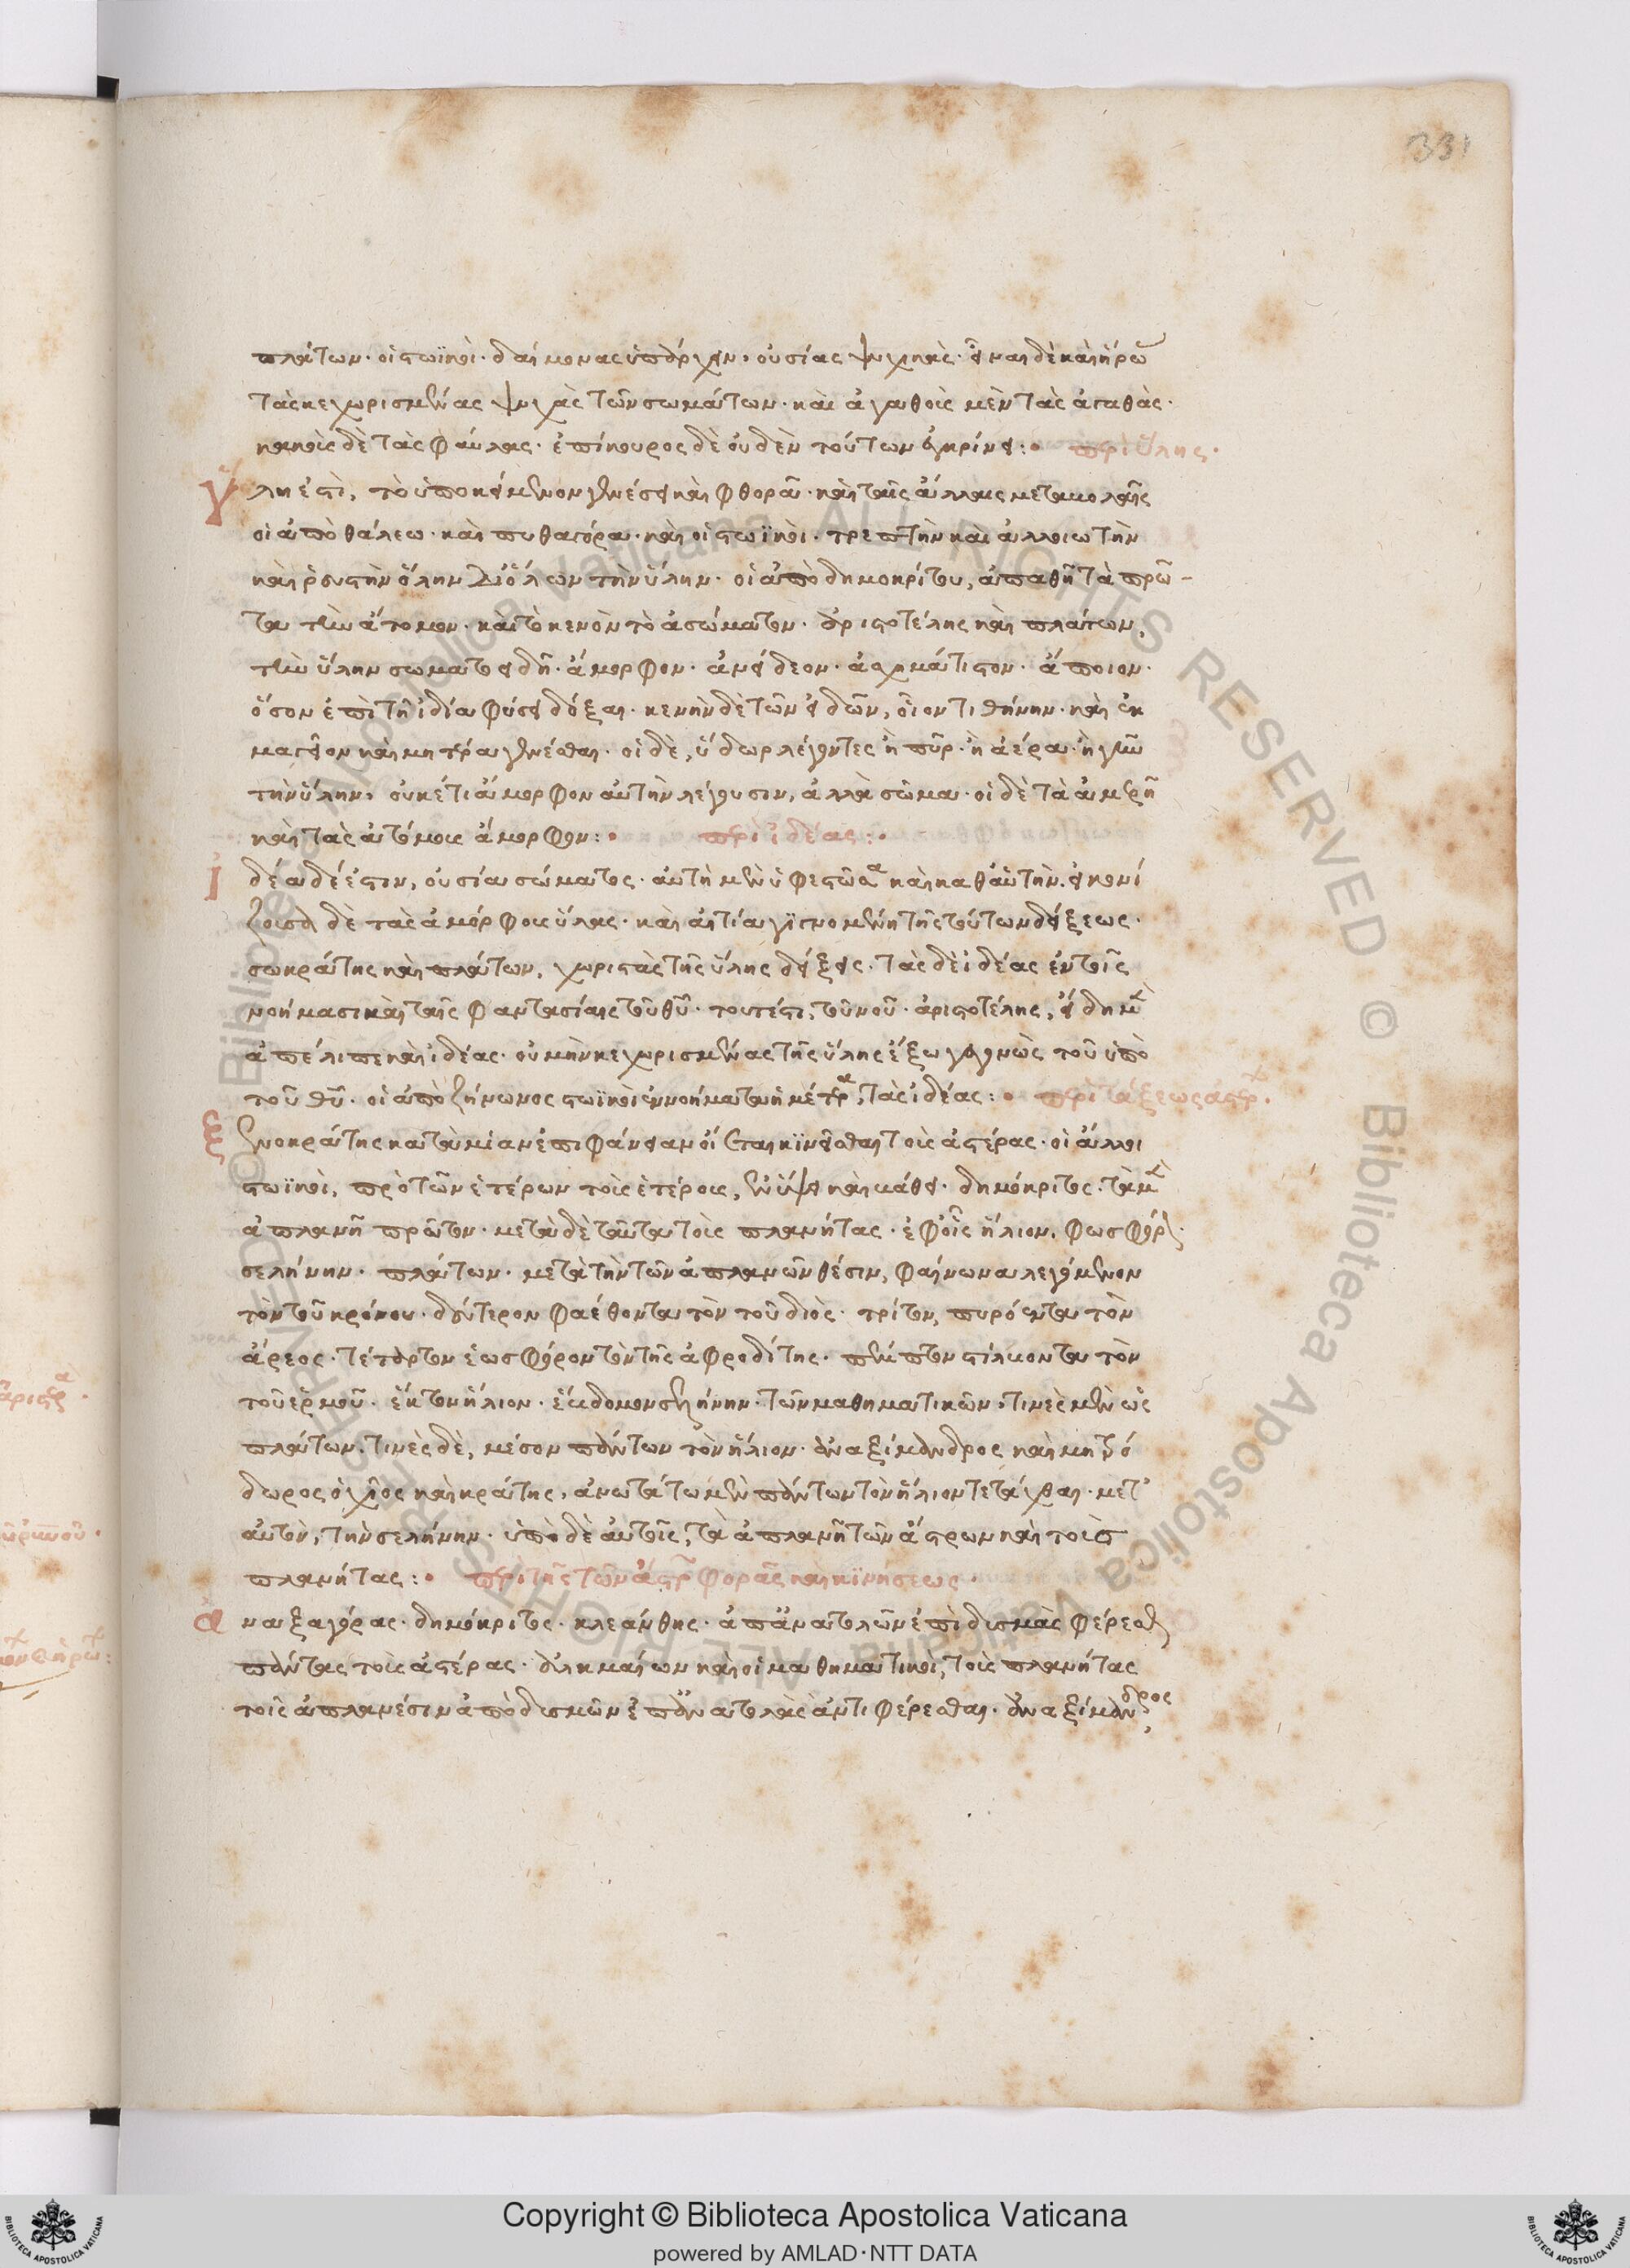 331
πλάτων· οἱ στωϊκοὶ· δαίμονας ὑπάρχειν, οὐσίας ψυχικὰς· εἶναι δὲ καὶ ἥρω
τὰς κεχωρισμένας ψυχὰς τῶν σωμάτων· καὶ ἀγαθοὺς μὲν τὰς ἀγαθὰς·
κακοὺς δὲ τὰς φαύλας· ἐπίκουρος δὲ οὐδὲν τούτων ἐγκρίνει: περὶ ὕλης·
ὕλη ἐστὶ, τὸ ὑποκείμενον γενέσει καὶ φθορᾶ· καὶ ταῖς ἄλλαις μεταβολαῖς
οἱ ἀπὸ θάλεω· καὶ πυθαγόρα· καὶ οἱ στωϊκοὶ· τρεπτὴν καὶ ἀλλοιωτὴν
καὶ ῥευστὴν ὅλην δι' ὅλων τὴν ὕλην· οἱ ἀπὸ δημοκρίτου, ἀπαθῆ τὰ πρῶ-
τα τὴν ἄτομον· καὶ τὸ κενὸν τὸ ἀσώματον· ἀριστοτέλης καὶ πλάτων,
τὴν ὕλην σωματοειδῆ· ἄμορφον· ἀνείδεον· ἀσχημάτιστον· ἄποιον·
ὅσον ἐπὶ τῆ ἰδία φύσει δόξαι· κενὴν δὲ τῶν εἰδῶν, οἷον τιθήνην· καὶ ἐκ
μαγεῖον καὶ μητέρα γενέσθαι· οἱ δὲ, ὕδωρ λέγοντες ἢ πῦρ· ἢ ἀέρα· ἢ γῆν
τὴν ὕλην, οὐκέτι ἄμορφον αὐτὴν λέγουσιν, ἀλλὰ σῶμα· οἱ δὲ τὰ ἀμερῆ
καὶ τὰς ἀτόμους ἄμορφον: περὶ ἰδέας:
ἰδέα δέ ἐστιν, οὐσία σώματος· αὐτὴ μὲν ὑφεστῶσα καὶ καθ' αὑτὴν· εἰκονί
ζουσα δὲ τὰς ἀμόρφους ὕλας· καὶ αἰτία γιγνομένη τῆς τούτων δείξεως·
σωκράτης καὶ πλάτων, χωριστὰς τῆς ὕλης δείξεις· τὰς δὲ ἰδέας ἐν τοῖς
νοήμασι καὶ ταῖς φαντασίαις τοῦ θυ· τουτέστι, τοῦ νοῦ· ἀριστοτέλης, εἴδη μ
ἀπέλιπε καὶ ἰδέας· οὐ μὴν κεχωρισμένας τῆς ὕλης ἔξω γεγονὼς τοῦ ὑπὸ
τοῦ θυ· οἱ ἀπὸ ζήνωνος στωϊκοὶ ἐννοήματα ἡμέτρα, τὰς ἰδέας: περὶ τάξεως ἀστρ·
ξενοκράτης κατὰ μίαν ἐπιφάνειαν οἴεται κϊνεῖσθαι τοὺς ἀστέρας· οἱ ἄλλοι
στωϊκοὶ, πρὸ τῶν ἑτέρων τοὺς ἑτέρους, ἐν ὕψει καὶ βάθει· δημόκριτος· τὰ μ
ἀπλανῆ πρῶτον· μετὰ δὲ ταῦτα τοὺς πλανήτας· ἐφ' οἷς ἥλιον, φωσφόρ
σελήνην· πλάτων· μετὰ τὴν τῶν ἀπλανῶν θέσιν, φαίνωνα λεγόμενον
τὸν τοῦ κρόνου· δεύτερον φαέθοντα τὸν τοῦ διὸς· τρίτον, πυρόεντα τὸν
ἄρεος· τέταρτον ἑωσφόρον τὸν τῆς ἀφροδίτης· πέμπτον στίλβοντα τὸν
τοῦ ἑρμοῦ· ἕκτον ἥλιον· ἕβδομον σελήνην· τῶν μαθηματικῶν, τινὲς μὲν ὡς
πλάτων, τινὲς δὲ, μέσον πάντων τὸν ἥλιον· ἀναξίμανδρος καὶ μητρό
δωρος ὁ χῖος καὶ κράτης, ἀνωτάτω μὲν πάντων τὸν ἥλιον τετάχθαι· μετ'
αὐτὸν, τὴν σελήνην· ὑπὸ δὲ αὐτοῖς, τὰ ἀπλανῆ τῶν ἄστρων καὶ τοὺς
πλανήτας: περὶ τῆς τῶν ἄστρ φορᾶς καὶ κϊνήσεως·
ἀναξαγόρας· δημόκριτος· κλεάνθης· ἀπ' ἀνατολῶν ἐπὶ δυσμὰς φέρεσθαι
πάντας τοὺς ἀστέρας· ἀλκμαίων καὶ οἱ μαθηματικοὶ, τοὺς πλανήτας
τοῖς ἀπλανέσιν ἀπὸ δυσμῶν ἐπ' ἀνατολὰς ἀντιφέρεσθαι· ἀναξίμανδρος,
Copyright © Biblioteca Apostolica Vaticana
powered by AMLAD·NTT DATA